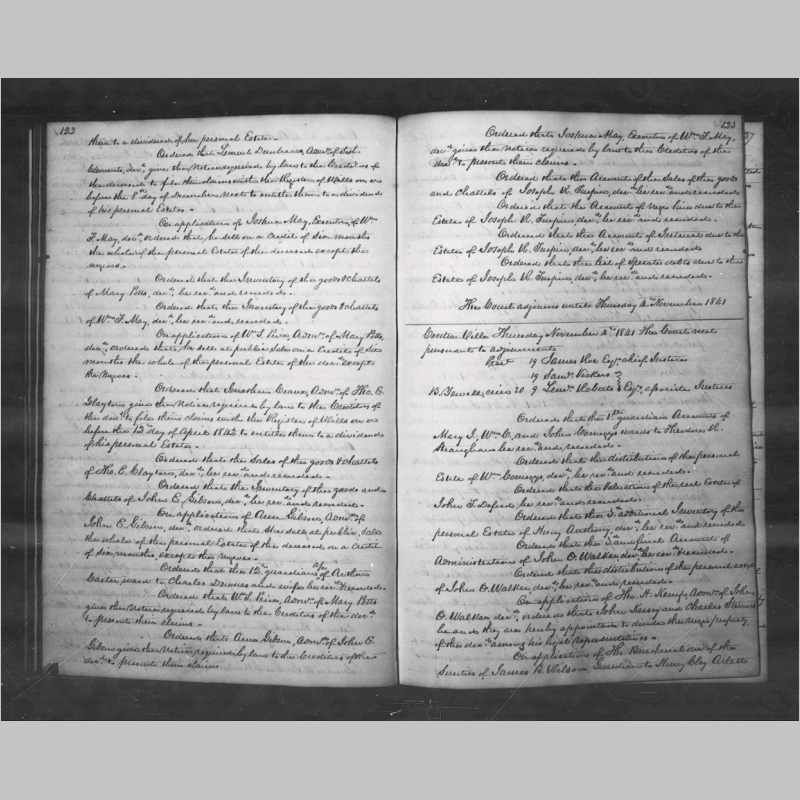 122
them to a dividend of his personal Estate.
Ordered that Lemuel Dunbracco, Admr. of
Clements, decd. give the notice required by law to the Creditors of
the deceased to file their claims with the Register of Wills on or
before the 8th day of December next to entitle them to a dividend
of his personal Estate.
On application of Joshua May, Executor of Wm.
T. May, decd. ordered that, he sell on a Credit of six months
the whole of the personal Estate of the deceased except the
negroes.
Ordered that the Inventory of the goods & chattels
of Mary Potts, decd. be recd. and recorded.
Ordered that the Inventory of the goods & chattels
of Wm. T. May, decd. be recd. and recorded.
On application of Wm. S. Admr. of Mary Potts,
decd. ordered that, he sell at public Sale on a Credit of six
months the whole of the personal Estate of the decd. except
the Negroes.
Ordered that Jonathan Evans, Admr. of Tho. E.
Clayton give the Notice required by law to the Creditors of
the decd. to file their claims with the Register of Wills on or
before the 12 day of April 1842 to entitle them to a dividend
of his personal Estate.
Ordered that the Sales of the goods & chattels
of Tho. E. Clayton, decd. be recd. and recorded.
Ordered that the Inventory of the goods and
Chattels of John E. Gibson, decd. be recd. and recorded.
On application of Ann Gibson, Admx. of
John E. Gibson, decd. ordered that she sell at public Sale
the whole of the personal Estate of the deceased on a Credit
of six months, except the Negroes.
Ordered that the 12th guardian a/c of Arthur
Carter, ward to Charles Downes and wife be recd. & recorded.
Ordered that W. S. Admr. of Mary Potts
give the Notice required by law to the Creditors of the decd.
to present their claims.
Ordered that Ann Gibson, Admx. of John E.
Gibson give the Notice required by law to the Creditors of the
decd. to present their claims.
123
Ordered that Joshua May, Executor of Wm. T. May,
decd. give the Notice required by law to the Creditors of the
decd. to present their claims.
Ordered that the Account of the Sales of the goods
and chattels of Joseph R. Turpin, decd. be recd. and recorded.
Ordered that the Account of negro hire due to the
Estate of Joseph R. Turpin, decd. be recd. and recorded.
Ordered that the Account of Interest due to the
Estate of Joseph R. Turpin, decd. be recd. and recorded
Ordered that the list of Sperate debts due to the
Estate of Joseph R. Turpin, decd. be recd. and recorded.
The Court adjourns until Thursday 4th November 1841
Centre Ville Thursday November 4th 1841 The Court met
pursuant to adjournment
Prest. 19 James Roe Esq. chief Justice
19 Saml. Vickers
B. Sewell, crier 20 9 Leml. Roberts Esqs. associate Justices
Ordered that the 1st guardian Accounts of
Mary J., Wm. C. and John Comegys wards to Theodore R.
Straughan be recd. and recorded.
Ordered that the distribution of the personal
Estate of Wm. Comegys, decd. be recd. and recorded.
Ordered that the Valuation of the real Estate of
John T. be recd. and recorded.
Ordered that the 3d additional Inventory of the
personal Estate of Henry Anthony, decd. be recd. and recorded
Ordered that the and final Account of
Administration of John O. Walker decd. be recd. & recorded.
Ordered that the distribution of the personal
of John O. Walker decd. be recd. and recorded.
On application of Tho. H. Kemp Admr. of John
O. Walker decd. ordered that John and Charles
be and they are hereby appointed to divide the negro property
of the decd. among his legal representatives.
On application of Tho. one of the
Sureties of James B. Wilson Guardian to Henry Clay